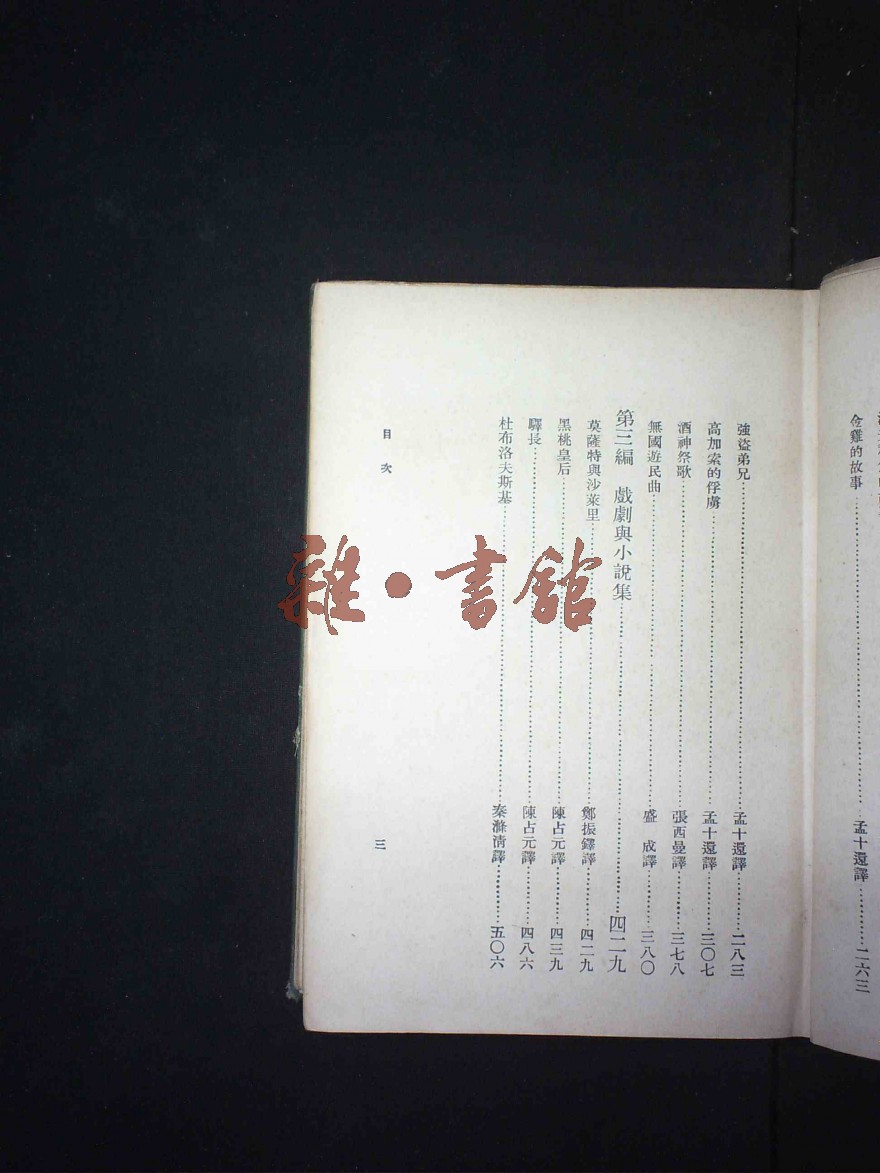 金雞的故事……孟十還譯……二六三
強盜弟兄……孟十還譯……二八三
高加索的俘虜……孟十還譯……三〇七
酒神祭歌……張西曼譯……三七八
無國遊民曲……盛 成譯……三八〇
第三編 戲劇與小說集……四二九
莫薩特與沙萊里……鄭振鐸譯……四二九
黑桃皇后……陳占元譯……四三九
驛長……陳占元譯……四八六
杜布洛夫斯基……秦滌清譯……五〇六
目次
三
雜·書館